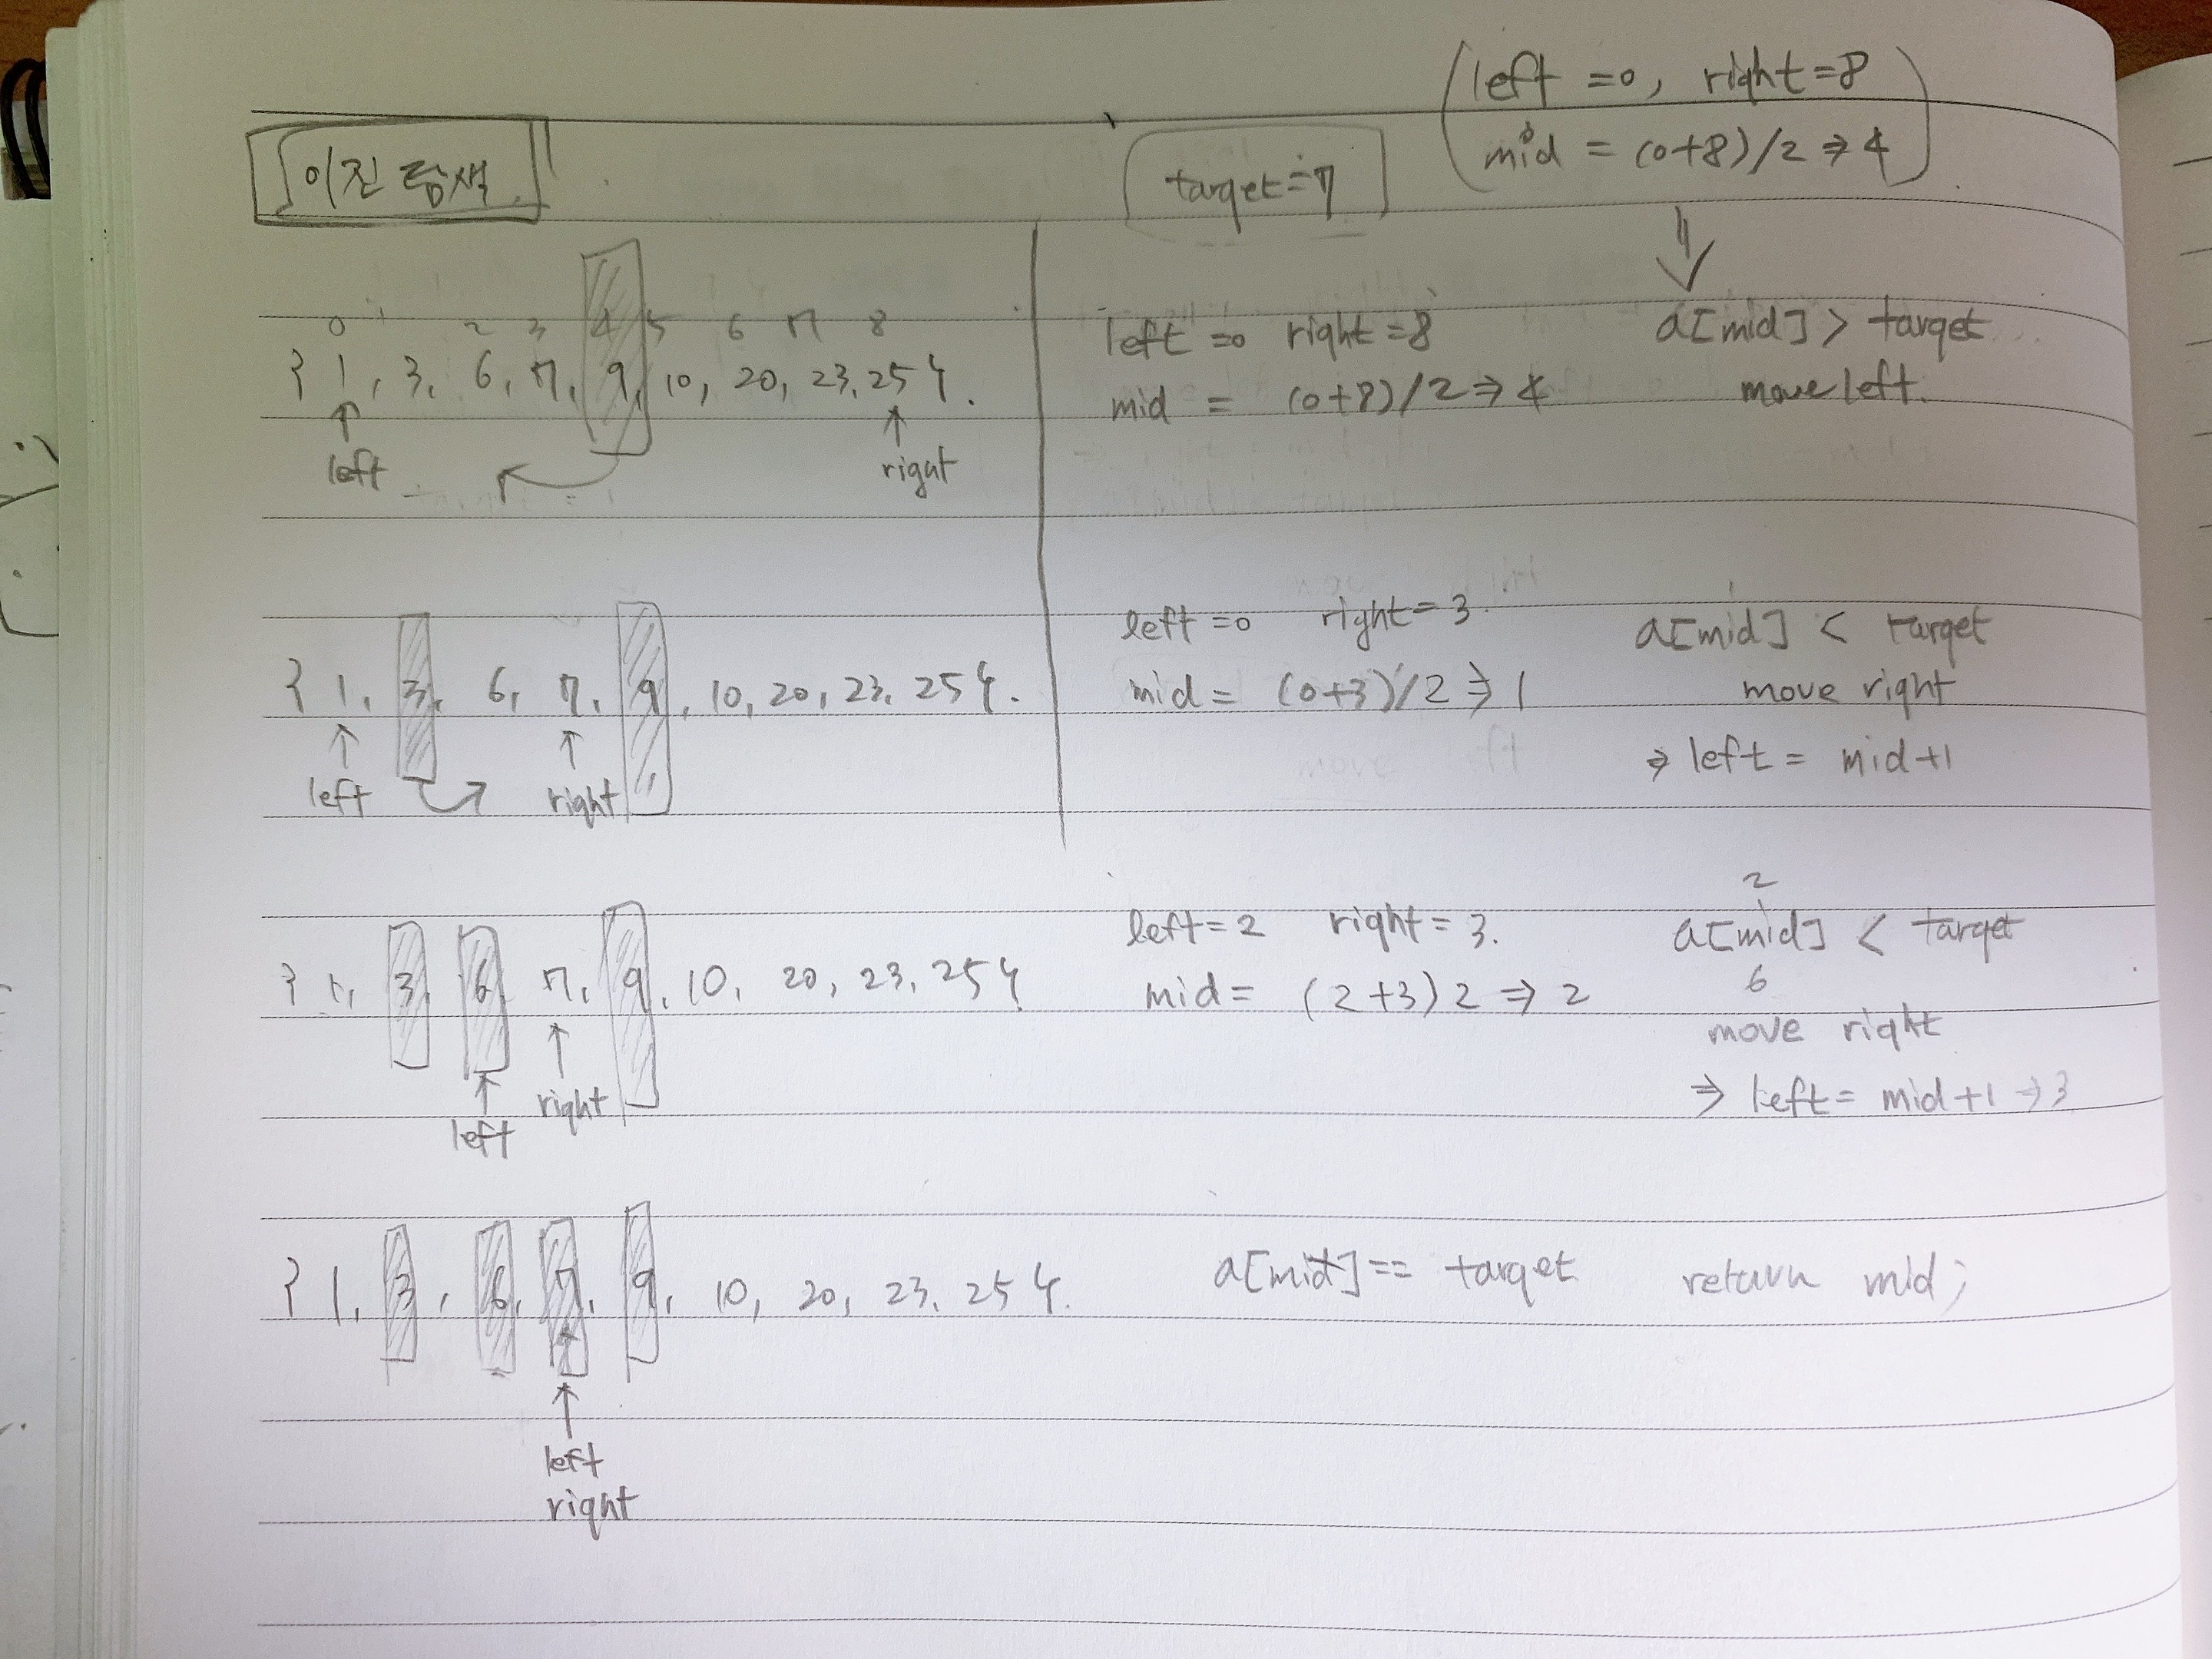 left = 0, right = 8
mid = (0+8)/2 ⇒ 4
이진 탐색
target = 7
0 1 2 3 4 5 6 7 8
{ 1, 3, 6, 7, 9, 10, 20, 23, 25 }.
left right
left = 0 right = 8
mid = (0+8)/2 ⇒ 4
a[mid] > target
move left.
{ 1, 3, 6, 7, 9, 10, 20, 23, 25 }.
left right
left = 0 right = 3.
mid = (0+3)/2 ⇒ 1
a[mid] < target
move right
⇒ left = mid+1
{ 1, 3, 6, 7, 9, 10, 20, 23, 25 }
right
left
left = 2 right = 3.
mid = (2+3) 2 ⇒ 2
2
a[mid] < target
6
move right
⇒ left = mid+1 → 3
{ 1, 3, 6, 7, 9, 10, 20, 23, 25 }.
left
right
a[mid] == target return mid;